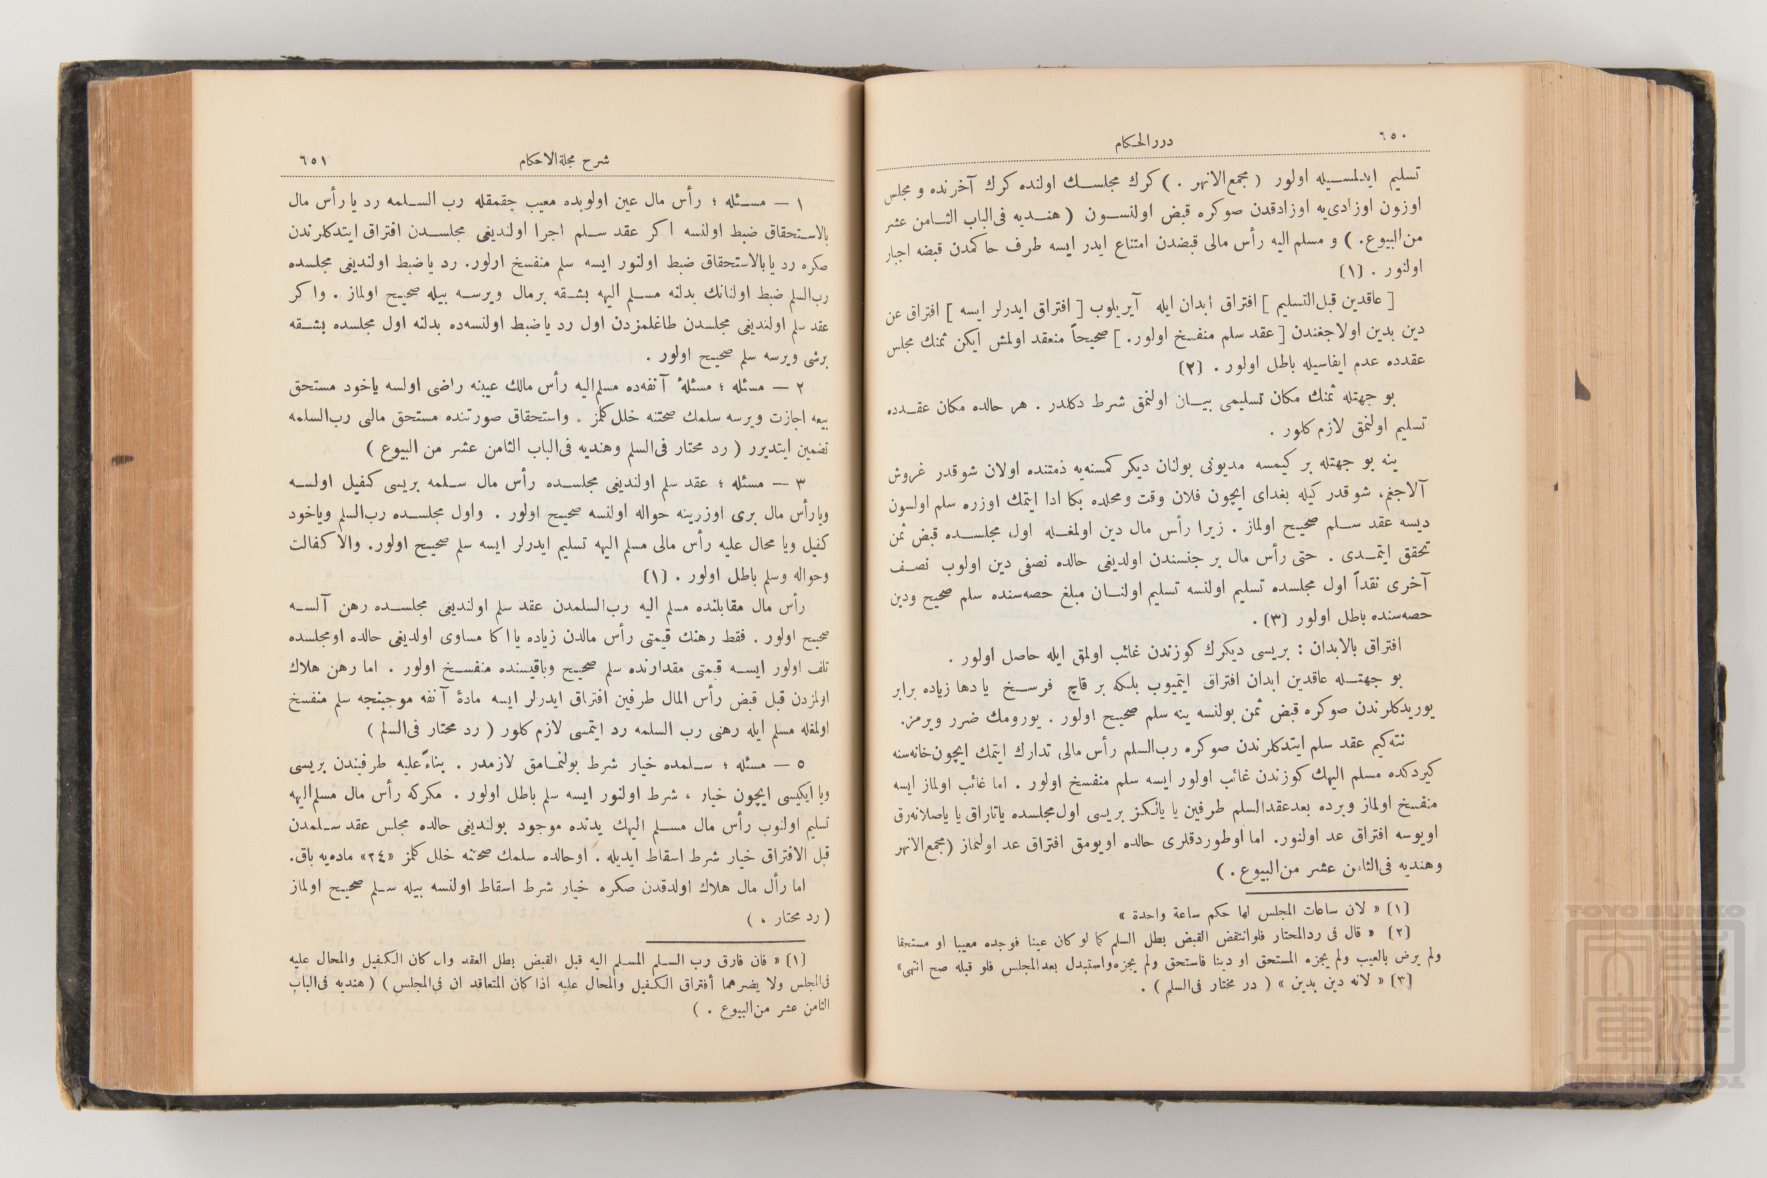 ٦٥٠
دررالحكام
تسليم ايدلمسيله اولور (مجمع‌الانهر .) كرك مجلسك اولنده كرك آخرنده و مجلس
اوزون اوزادى‌يه اوزادقدن صوكره قبض اولنسون (هنديه فى‌الباب الثامن عشر
من‌البيوع.) و مسلم اليه رأس مالى قبضدن امتناع ايدر ايسه طرف حاكمدن قبضه اجبار
اولنور . (١)
[ عاقدين قبل‌التسليم ] افتراق ابدان ايله آيريلوب [ افتراق ايدرلر ايسه ] افتراق عن
دين بدين اولاجغندن [ عقد سلم منفسخ اولور. ] صحيحاً منعقد اولمش ايكن ثمنك مجلس
عقدده عدم ايفاسيله باطل اولور . (٢)
بو جهتله ثمنك مكان تسليمى بيان اولنمق شرط دكلدر . هر حالده مكان عقدده
تسليم اولنمق لازم كلور .
ينه بو جهتله بر كيمسه مديونى بولنان ديكر كمسنه‌يه ذمتنده اولان شوقدر غروش
آلاجغم، شوقدر كيله بغداى ايچون فلان وقت ومحلده بكا ادا ايتمك اوزره سلم اولسون
ديسه عقد سلم صحيح اولماز . زيرا رأس مال دين اولمغله اول مجلسده قبض ثمن
تحقق ايتمدى . حتى رأس مال بر جنسندن اولديغى حالده نصفى دين اولوب نصف
آخرى نقداً اول مجلسده تسليم اولنسه تسليم اولنان مبلغ حصه‌سنده سلم صحيح ودين
حصه‌سنده باطل اولور (٣) .
افتراق بالابدان : بريسى ديكرك كوزندن غائب اولمق ايله حاصل اولور .
بو جهتله عاقدين ابدان افتراق ايتميوب بلكه بر قاچ فرسخ يا دها زياده برابر
يوريدكلرندن صوكره قبض ثمن بولنسه ينه سلم صحيح اولور . يورومك ضرر ويرمز.
نته‌كيم عقد سلم ايتدكلرندن صوكره رب‌السلم رأس مالى تدارك ايتمك ايچون‌خانه‌سنه
كيردكده مسلم اليهك كوزندن غائب اولور ايسه سلم منفسخ اولور . اما غائب اولماز ايسه
منفسخ اولماز وبرده بعدعقدالسلم طرفين يا يالكز بريسى اول‌مجلسده ياتاراق يا ياصلانه‌رق
اويوسه افتراق عد اولنور. اما اوطوردقلرى حالده اويومق افتراق عد اولنماز (مجمع‌الانهر
وهنديه فى‌الثامن عشر من‌البيوع . )
(١) « لان ساعات المجلس لها حكم ساعة واحدة »
(٢) « قال فى ردالمحتار فلوانتقض القبض بطل السلم كما لو كان عينا فوجده معيبا او مستحقا
ولم يرض بالعيب ولم يجزه المستحق او دينا فاستحق ولم يجزه‌واستبدل بعدالمجلس فلو قبله صح انتهى»
(٣) « لانه دين بدين » ( در مختار فى‌السلم ) .
شرح مجلة‌الاحكام
٦٥١
١ — مسئله ؛ رأس مال عين اولوبده معيب چقمقله رب السلمه رد يا رأس مال
بالاستحقاق ضبط اولنسه اكر عقد سلم اجرا اولنديغى مجلسدن افتراق ايتدكلرندن
صكره رد يا بالاستحقاق ضبط اولنور ايسه سلم منفسخ اولور. رد يا ضبط اولنديغى مجلسده
رب‌السلم ضبط اولنانك بدلنه مسلم اليهه بشقه برمال ويرسه بيله صحيح اولماز . واكر
عقد سلم اولنديغى مجلسدن طاغلمزدن اول رد يا ضبط اولنسه‌ده بدلنه اول مجلسده بشقه
برشى ويرسه سلم صحيح اولور .
٢ — مسئله ؛ مسئلهٔ آنفه‌ده مسلم‌اليه رأس مالك عيبنه راضى اولسه ياخود مستحق
بيعه اجازت ويرسه سلمك صحتنه خلل‌كلمز . واستحقاق صورتنده مستحق مالنى رب‌السلمه
تضمين ايتديرر ( رد محتار فى‌السلم وهنديه فى‌الباب الثامن عشر من البيوع )
٣ — مسئله ؛ عقد سلم اولنديغى مجلسده رأس مال سلمه بريسى كفيل اولسه
ويارأس مال برى اوزرينه حواله اولنسه صحيح اولور . واول مجلسده رب‌السلم وياخود
كفيل ويا محال عليه رأس مالى مسلم اليهه تسليم ايدرلر ايسه سلم صحيح اولور. والا كفالت
وحواله وسلم باطل اولور . (١)
رأس مال مقابلنده مسلم اليه رب‌السلمدن عقد سلم اولنديغى مجلسده رهن آلسه
صحيح اولور . فقط رهنك قيمتى رأس مالدن زياده يا اكا مساوى اولديغى حالده اومجلسده
تلف اولور ايسه قيمتى مقدارنده سلم صحيح وباقيسنده منفسخ اولور . اما رهن هلاك
اولمزدن قبل قبض رأس المال طرفين افتراق ايدرلر ايسه مادهٔ آنفه موجبنجه سلم منفسخ
اولمغله مسلم ايله رهنى رب السلمه رد ايتمسى لازم كلور ( رد محتار فى‌السلم )
٥ — مسئله ؛ سلمده خيار شرط بولنمامق لازمدر . بناءً عليه طرفيندن بريسى
ويا ايكيسى ايچون خيار ، شرط اولنور ايسه سلم باطل اولور . مكركه رأس مال مسلم‌اليهه
تسليم اولنوب رأس مال مسلم اليهك يدنده موجود بولنديغى حالده مجلس عقد سلمدن
قبل الافتراق خيار شرط اسقاط ايديله . اوحالده سلمك صحتنه خلل كلمز «٢٤» ماده‌يه باق.
اما رأل مال هلاك اولدقدن صكره خيار شرط اسقاط اولنسه بيله سلم صحيح اولماز
( رد محتار . )
(١) « فان فارق رب السلم المسلم اليه قبل القبض بطل العقد وان كان الكفيل والمحال عليه
فى‌المجلس ولا يضرهما أفتراق الكفيل والمحال عليه اذا كان المتعاقد ان فى‌المجلس ) ( هنديه فى‌الباب
الثامن عشر من‌البيوع . )
TOYO BUNKO